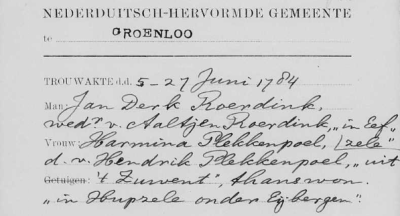 NEDERDUITSCH-HERVORMDE GEMEENTE
te GROENLOO
TROUWAKTE d.d. 5-27 Juni 1784
Man: Jan Derk Roerdink,
wedr. v. Aaltjen Roerdink, „in Eef"
Vrouw Harmina Plekkenpoel, (zele"
d. v. Hendrik Plekkenpoel, „uit
Getuigen: 't Zuwent", thans won.
„in Hupzele onder Eijbergen".